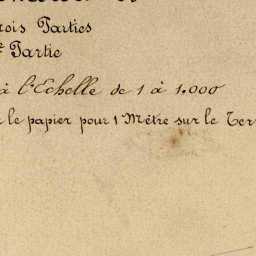 rois Parties
e Partie
à l'Echelle de 1 à 1.000
le papier pour 1 Mètre sur le Ter